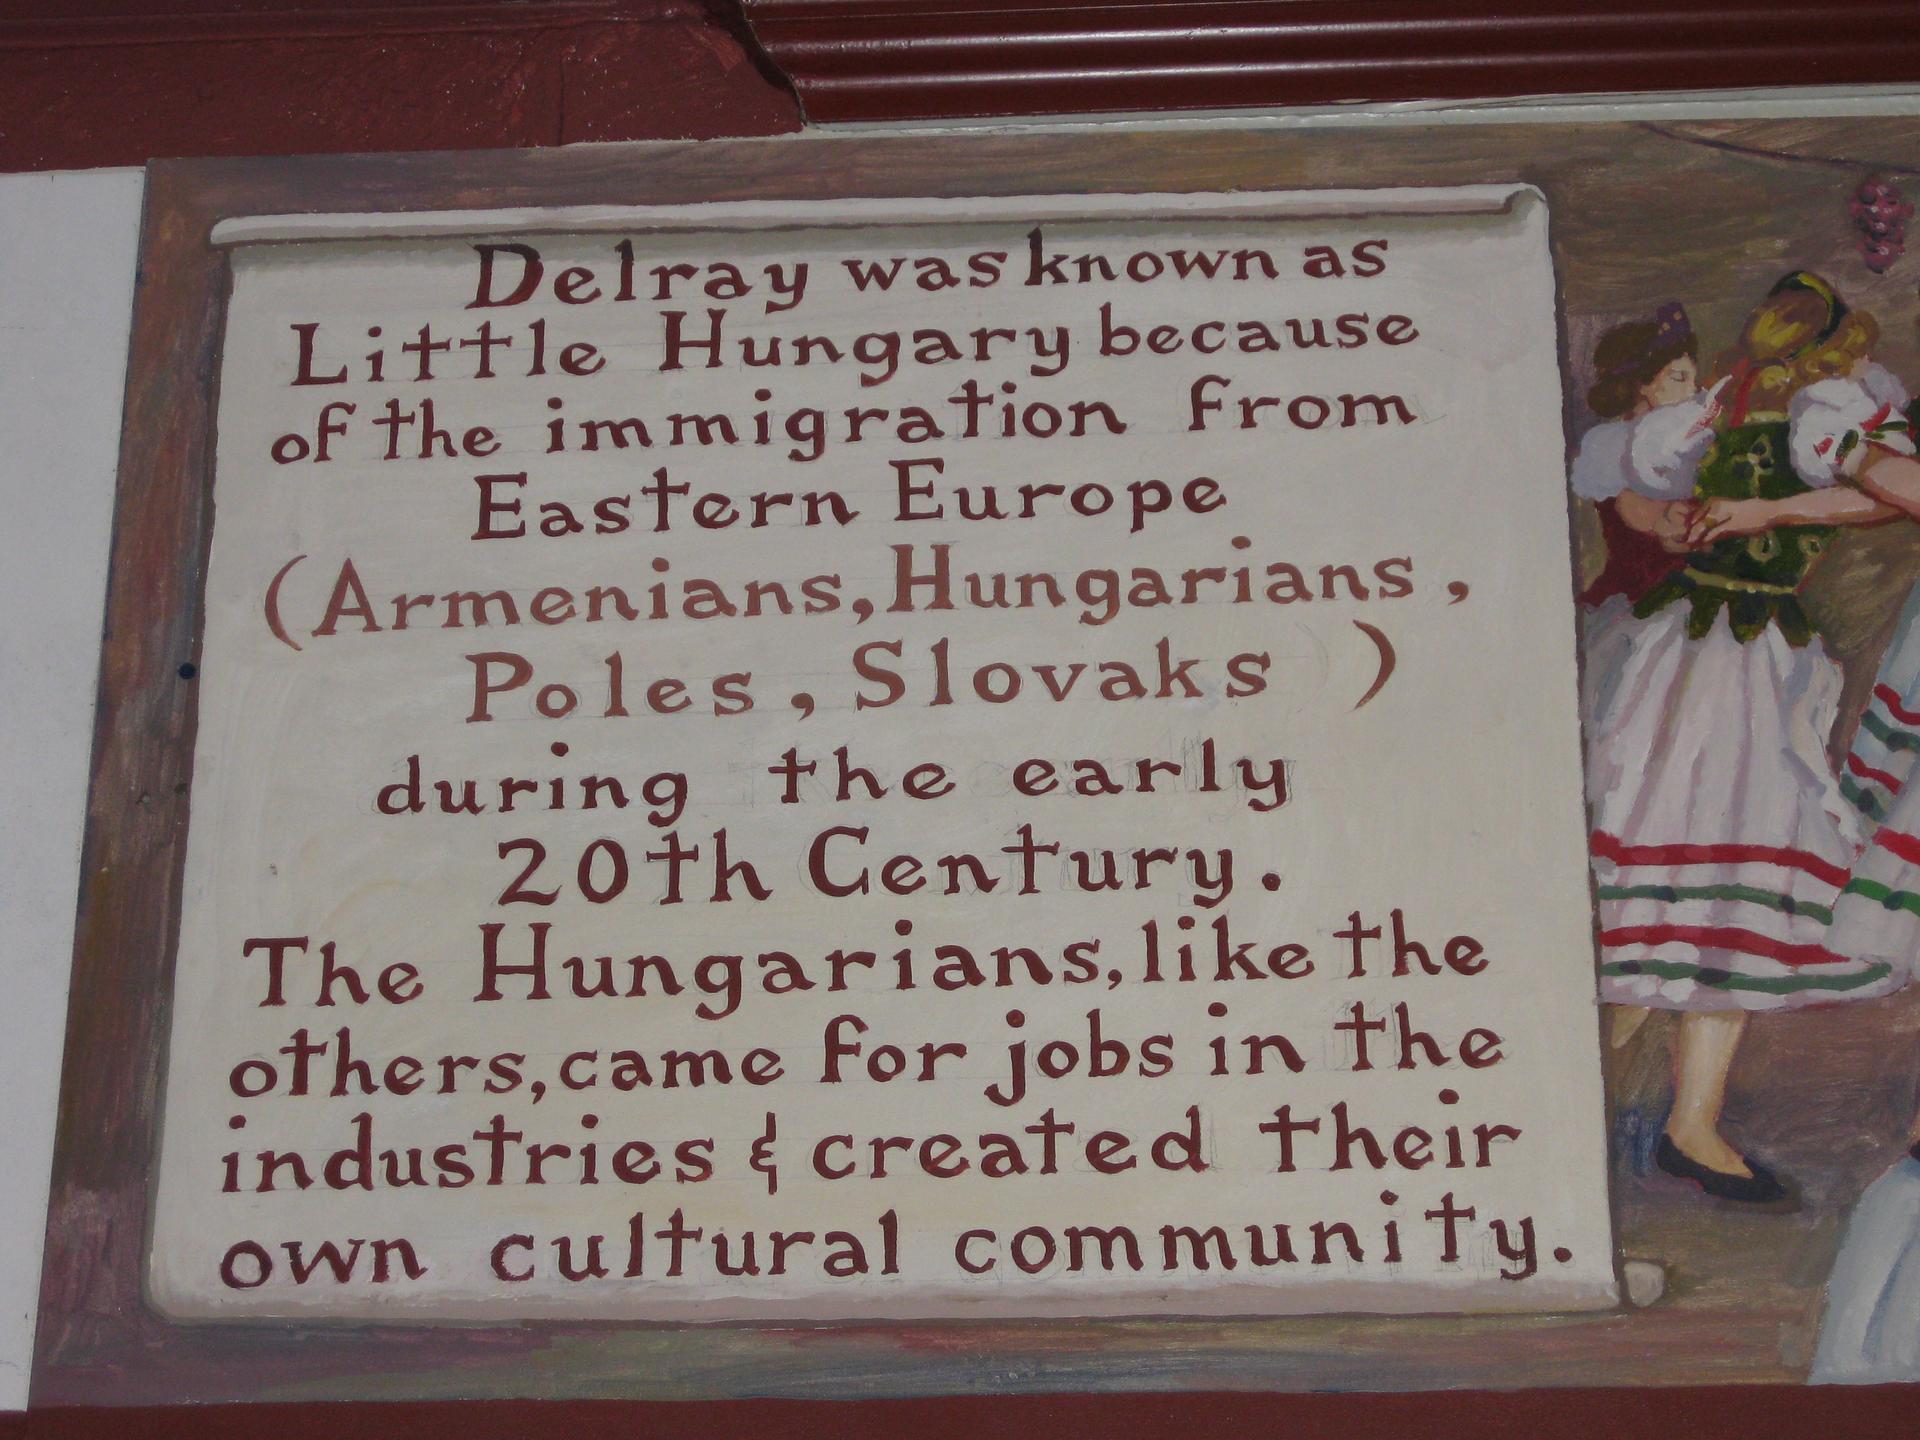 Delray was known as
Little Hungary because
of the immigration from
Eastern Europe
(Armenians, Hungarians,
Poles, Slovaks )
during the early
20th Century.
The Hungarians, like the
others, came for jobs in the
industries & created their
own cultural community.